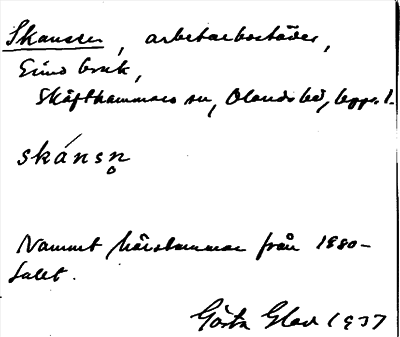 Skansen, arbetarbostäder,
Gimo bruk,
Skäfthammars sn, Olands hd, Uppl.
skánsn̥
Namnet härstammar från 1880-
talet.
Gösta Glad 1937